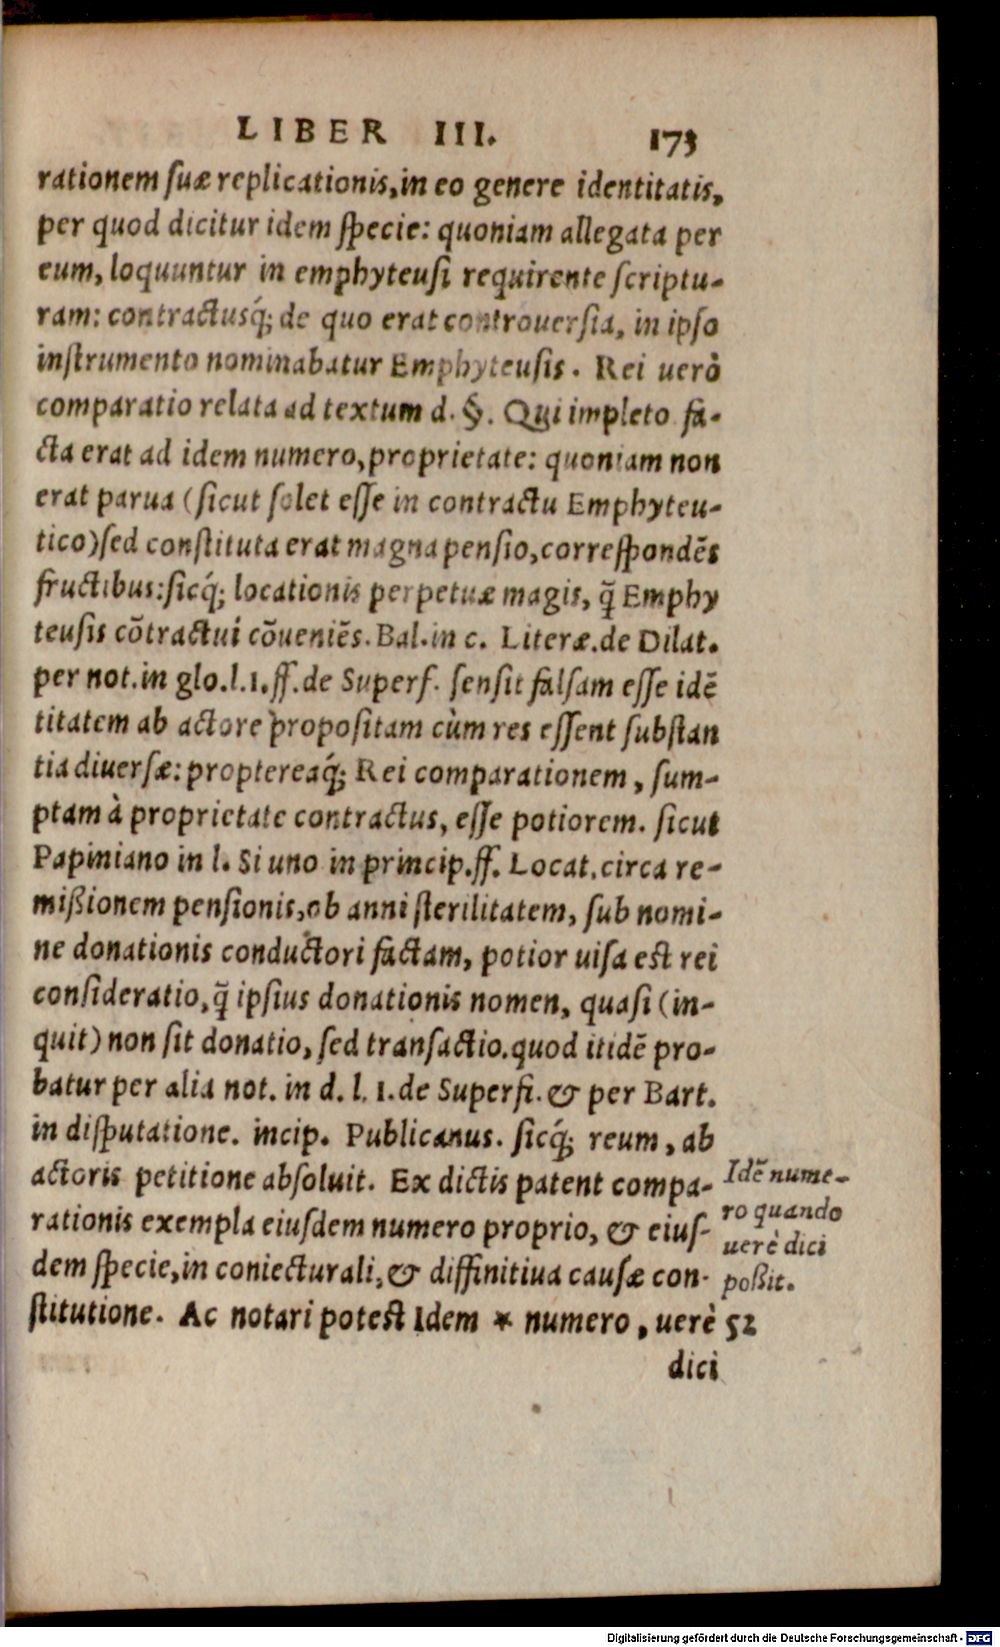 LIBER III. 173
rationem suæ replicationis, in eo genere identitatis,
per quod dicitur idem specie: quoniam allegata per
eum, loquuntur in emphyteusi requirente scriptu-
ram: contractusq́; de quo erat controuersia, in ipso
instrumento nominabatur Emphyteusis. Rei uerò
comparatio relata ad textum d. §. Qui impleto fa-
cta erat ad idem numero, proprietate: quoniam non
erat parua (sicut solet esse in contractu Emphyteu-
tico) sed constituta erat magna pensio, correspondẽs
fructibus: sicq́; locationis perpetuæ magis, q̃ Emphy
teusis cõtractui cõueniẽs. Bal. in c. Literæ. de Dilat.
per not. in glo. l. 1. ff. de Superf. sensit falsam esse idẽ
titatem ab actore propositam cùm res essent substan
tia diuersæ: proptereaq́; Rei comparationem, sum-
ptam à proprietate contractus, esse potiorem. sicut
Papiniano in l. Si uno in princip. ff. Locat. circa re-
mißionem pensionis, ob anni sterilitatem, sub nomi-
ne donationis conductori factam, potior uisa est rei
consideratio, q̃ ipsius donationis nomen, quasi (in-
quit) non sit donatio, sed transactio. quod itidẽ pro-
batur per alia not. in d. l. 1. de Superfi. & per Bart.
in disputatione. incip. Publicanus. sicq́; reum, ab
actoris petitione absoluit. Ex dictis patent compa-
rationis exempla eiusdem numero proprio, & eius-
dem specie, in coniecturali, & diffinitiua causæ con-
stitutione. Ac notari potest Idem * numero, uerè
dici
Idẽ nume-
ro quando
uerè dici
poßit.
52
Digitalisierung gefördert durch die Deutsche Forschungsgemeinschaft - DFG